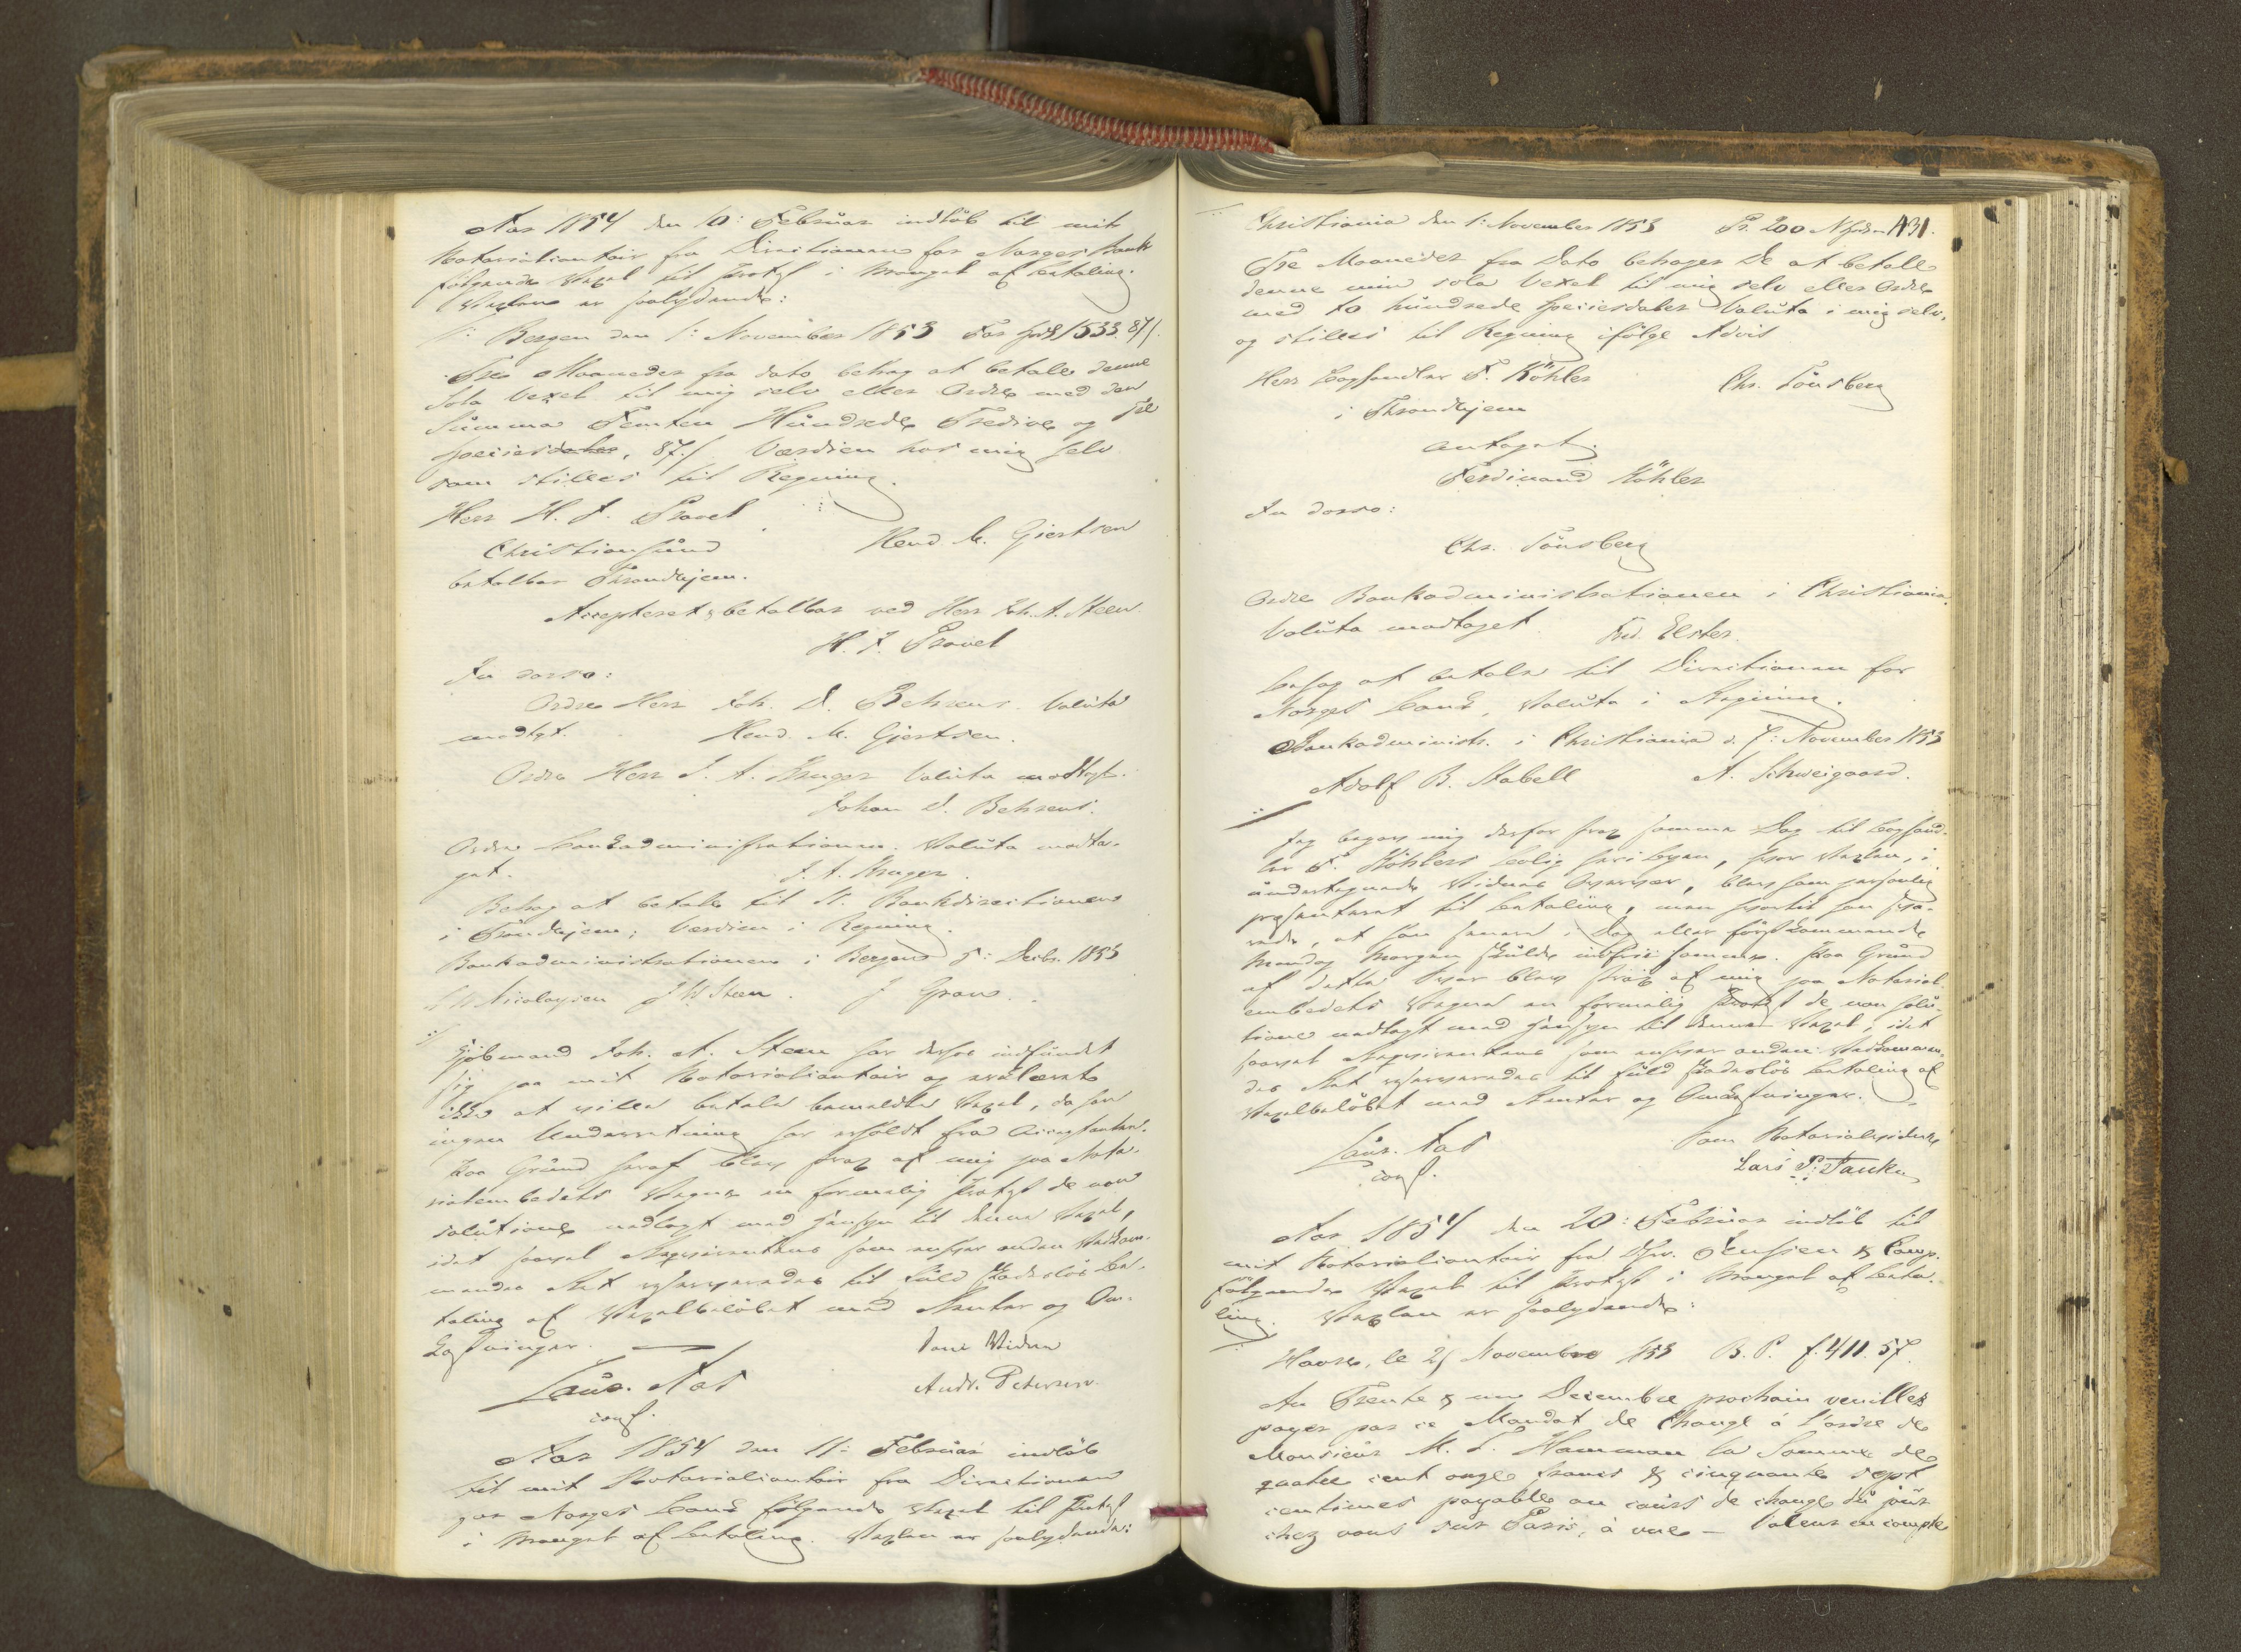 Aar 1854 den 10: Februar indløb til mit
Notarialcontoir fra Directionen for Norges Bank
følgende Vexel til Protest i Mangel af Betaling.
Vexlen er saalydende:
Bergen den 1: November 1853 For 1533. 87/.
Tre Maaneder fra dato behag at betale denne
Sola Vexel til mig selv eller Ordre med den
Summa Femten Hundrede Tredive og Tre
Speciesdaler, 87/. Værdien hos mig selv
som stilles til Regning.
Herr H. J.
Christiansund Hend. M. Giertsen
betalbar Throndhjem.
Accepteret, betalbar ved Herr Joh. A. Steen
H. J.
In dorso:
Ordre Herr Joh. D. Behrens. Valuta
modtgt. Hend. M. Gjertsen.
Ordre Herr J. A. Kruger Valuta modtagt.
Johan D. Behrens.
Ordre Bankadministrationen. Valuta modta-
get. J. A. Kruger.
Behag at betale til N. Bankdirectionen
i Trondhjem; Værdien i Regning.
Bankadministrationen i Bergen d 5: Decbr. 1853
Nicolaysen J W Steen. J Gran.
Kjøbmand Joh. A. Steen har derfor indfundet
sig paa mit Notarialcontoir og erklæret
ikke at ville betale bemeldte Vexel, da han
ingen Underretning har erholdt fra Acceptanten.
Paa Grund heraf blev strax af mig paa Nota-
rialembedets Vegne en formelig Protest de non
solutione nedlagt med Hensyn til denne Vexel,
idet saavel Reqvirentens som enhver anden Vedkom-
mendes Ret reserveredes til fuld skadesløs Be-
taling af Vexelbeløbet med Renter og Om-
kostninger.
Som Vidne
Laur. Aas Andr. Petersen.
const.
Aar 1854 den 11: Februar indløb
til mit Notarialcontoir fra Directionen
for Norges Bank følgende Vexel til Protest
i Mangel af Betaling. Vexlen er saalydende:
431.
Christiania den 1: November 1853 Pr. 200
Tre Maaneder fra Dato behager De at betale
denne min sola Vexel til mig selv eller Ordre
med to hundrede Speciesdaler Valuta i mig selv,
og stilles til Regning ifølge Advis
Herr Boghandler F. Köhler Chr. Tönsberg
i Throndhjem
antaget
Ferdinand Köhler
In dorso:
Chr. Tönsberg
Ordre Bankadministrationen i Christiania.
Valuta modtaget Frd. Elster.
Behag at betale til Directionen for
Norges Bank, Valuta i Regning.
Bankadministr. i Christiania d. 7: November 1853
Adolf B. Stabell A. Schweigaard.
Jeg begav mig derfor strax samme Dag til Boghand-
ler F. Köhlers Bolig her i Byen, hvor Vexlen, i
undertegnede Vidnes Overvær, blev ham personlig
præsenteret til Betaling, men hvortil han sva-
rede, at han senere i Dag eller førstkommende
Mandag Morgen skulde indfrie samme. Paa Grund
af dette Svar blev strax af mig paa Notarial-
embedets Vegne en formelig Protest de non solu-
tione nedlagt med Hensyn til denne Vexel, idet
saavel Reqvirentens som enhver anden Vedkommen-
des Ret reserveredes til fuld skadesløs Betaling af
Vexelbeløbet med Renter og Omkostninger.
Som Notarialvidne
Laur. Aas Lars P. Tanke
const.
Aar 1854 den 20: Februar indløb til
mit Notarialcontoir fra DHrr. Jenssen & Comp.
følgende Vexel til Protest i Mangel af Beta-
ling. Vexlen er saalydende:
Havre, le 21 Novembre 1853 B. P. f. 411. 57.
Au Trente & un Decembre prochain veuillez
payer par ce Mandat de Change á L'ordre de
Monsieur M. T. Hamman la Somme de
quatre cent onze francs & cinquante sept
centimes payable au cours de change du jour
chez vous sur Paris, à vue - Valeur en compte